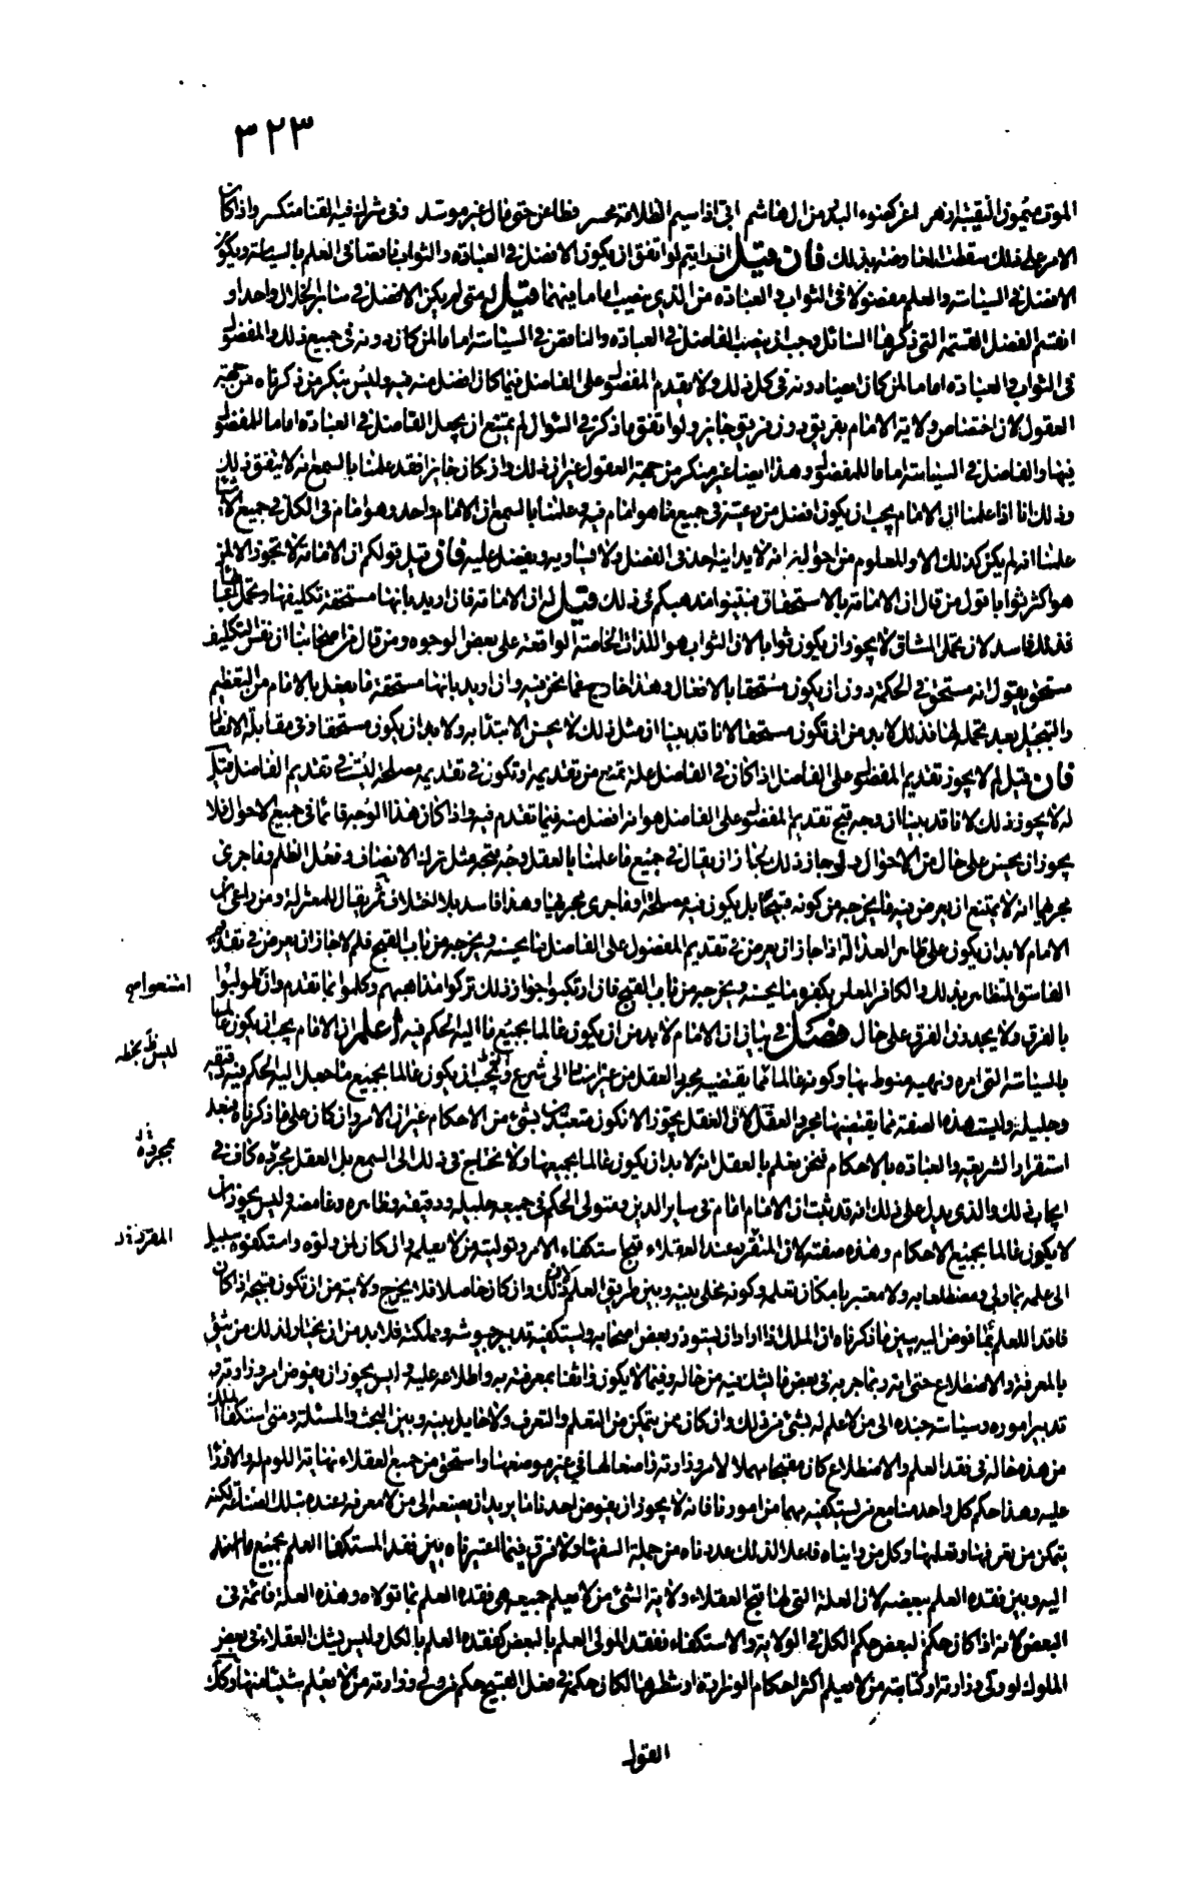 ٣٢٣
الامر على ذلك سقطت المعارضة بذلك فان قيل ارايتم لو اتفق ان يكون الافضل في العبادة والثواب ناقصا في العلم بالسياسة ويكون
الافضل في السياسة والعلم مفضولا في الثواب والعبادة من الذي ينصب اماما منهما قيل له متى لم يكن الافضل في سائر الخلال واحدا و
انقسم الفضل القسمة التي ذكرها السائل وجب ان ينصب الفاضل في العبادة والناقص في السياسة اماما لمن كان دونه في جميع ذلك والمفضول
في الثواب والعبادة اماما لمن كان ايضا دونه في كل ذلك ولا يقدم المفضول على الفاضل فيما كان افضل منه فيه وليس ينكر من ذكرناه من جهة
العقول لان اختصاص ولاية الامام بفريق دون فريق جايز ولو اتفق ما ذكر في السؤال لم يمتنع ان يجعل الفاضل في العبادة اماما للمفضول
فيها والفاضل في السياسة اماما للمفضول وهذا ايضا غير منكر من جهة العقول غير ان ذلك وان كان جايزا فقد علمنا بالسمع انه لا يتفق ذلك
وذلك انا اذا علمنا ان الامام يجب ان يكون افضل من رعيته في جميع ما هو امام فيه وعلمنا بالسمع ان الامام واحد وهو امام في الكل في جميع
علمنا انه لم يكن كذلك الا والمعلوم من احواله انه لا يدانيه احد في الفضل ولا يساويه ويفضل عليه فان قيل قولكم ان الامامة لا تجوز الا لمن
هو اكثر ثوابا قول من قال ان الامامة بالاستحقاق فبينوا مذهبكم في ذلك قيل له ان الامامة فان اريد بانها مستحقة تكليفها وتحمل
فذلك فاسد لان تحمل المشاق لا يجوز ان يكون ثوابا لان الثواب هو اللذات الخاصة الواقعة على بعض الوجوه ومن قال من اصحابنا ان نفس التكليف
مستحق يقول انه مستحق في الحكمة دون ان يكون مستحقا بالافعال وهذا خارج عما نحن فيه وان اريد بانها مستحقة ما يفعل بالامام من التعظيم
والتبجيل بعد تحمله لها فذلك لابد من ان تكون مستحقا لانا قد بينا ان مثل ذلك لا يحسن الابتداء به ولا بد ان يكون مستحقا وفي مقابلة الافعال
فان قيل لم لا يجوز تقديم المفضول على الفاضل اذا كان في الفاضل علة تمنع من تقديمه او تكون في تقديمه مصلحة ليست في تقديم الفاضل قيل
له لا يجوز ذلك لانا قد بينا ان وجه قبح تقديم المفضول على الفاضل هو انه افضل منه فيما تقدم فيه واذا كان هذا الوجه قائما في جميع الاحوال فلا
يجوز ان يحسن على حال من الاحوال ولو جاز ذلك لجاز ان يقال في جميع ما علمنا بالعقل وجه قبحه مثل ترك الانصاف وفعل الظلم وما جرى
مجراهما انه لا يمتنع ان يعرض فيه ما يخرجه من كونه قبيحا بل يكون فيه مصلحة وما جرى مجراها وهذا فاسد بلا اختلاف ثم يقال للمعتزلة ومن راعى ان
الامام لا بد ان يكون على ظاهر العدالة اذا جاز ان يعرض في تقديم المفضول على الفاضل ما يحسنه ويخرجه من باب القبح فلم لا جاز ان يعرض في تقديم
الفاسق المتظاهر بذلك والكافر المعلن بكفره ما يحسنه ويخرجه من باب القبح فان ارتكبوا جواز ذلك تركوا مذاهبهم وكلموا بما تقدم وان طولبوا
بالفرق ولا يجدون الفرق على حال فصل في بيان ان الامام لا بد من ان يكون عالما بجميع ما اليه الحكم فيه اعلم ان الامام يجب ان يكون عالما
بالسياسة التي امره ونهيه منوط بها وكونه عالما مما يقتضيه مجرد العقل من غير استناد الى شرع ويجب ان يكون عالما بجميع ما جعل اليه الحكم فيه دقيقه
وجليله وليست هذه الصفة مما يقتضيها مجرد العقل لان العقل يجوز الا نكون متعبدين بشيء من الاحكام غير ان الامر وان كان على ما ذكرناه فبعد
استقرار الشريعة والعبادة بالاحكام فنحن نعلم بالعقل انه لابد ان يكون عالما بجميعها ولا نحتاج في ذلك الى السمع بل العقل مجرده كاف في
ايجاب ذلك والذي يدل على ذلك انه قد ثبت ان الامام امام في سائر الدين ومتولى الحكم في جميعه جليله ودقيقه وظاهره وغامضه وليس يجوز ان
لا يكون عالما بجميع الاحكام وهذه صفته لان المتقرر عند العقلاء قبح استكفاء الامر وتوليته من لا يعلمه وان كان لمن ولوه واستكفوه سبيل
الى علمه بما ولي ومضطلعا به ولا معتبر بامكان تعلمه وكونه مخلى بينه وبين طريق العلم لان ذلك وان كان حاصلا فلا يخرج ولايته من ان تكون قبيحة اذا كان
فاقدا للعلم بما فوض اليه يبين ما ذكرناه ان الملك اذا اراد ان يستوزر بعض اصحابه ويستكفيه تدبير جيوشه ومملكته فلا بد من ان يختار لذلك من يثق
بالمعرفة والاضطلاع حتى انه ربما جربه في بعض ما يشك فيه من حاله وفيما لا يكون واثقا بمعرفته به واطلاعه عليه وليس يجوز ان يفوض امر وزارته و
تدبير اموره وسياسة جنده الى من لا علم له بشيء من ذلك وان كان ممن يتمكن من التعلم والتعرف ولا حايل بينه وبين البحث والمسئلة ومتى استكفا الملك
من هذه حاله في فقد العلم والاضطلاع كان مقبحا مهملا لامر وزارته واضعا لها في غير موضعها واستحق من جميع العقلاء نهاية اللوم له والازراء
عليه وهذا حكم كل واحد منا مع من يستكفيه مهما من اموره فانه لا يجوز ان يفوض احدنا ما يريد ان يصنعه الى من لا معرفة عنده بتلك الصناعة لكنه
يتمكن من تعرفها وتعلمها وكل من راينا فاعلا لذلك عددناه من جملة السفهاء ولا فرق فيما اعتبرناه بين فقد المستكفا العلم بجميع ما اسند
اليه وبين فقده العلم ببعضه لان العلة التي لها قبح العقلاء ولاية الشيء من لا يعلم جميعه هي فقده العلم بما تولاه وهذه العلة قائمة في
البعض لانه اذا كان حكم البعض حكم الكل في الولاية والاستكفاء ففقد المولى العلم بالبعض كفقده العلم بالكل وليس يشك العقلاء في بعض
الملوك لو ولى وزارته او كتابته من لا يعلم اكثر احكام الوزارة او شطرها لكان حكمه في فعل القبيح حكم من ولى وزارته من لا يعلم شيئا منها وكل
القول
امتنعوا
ليس بخطه
مجردة
المقرر